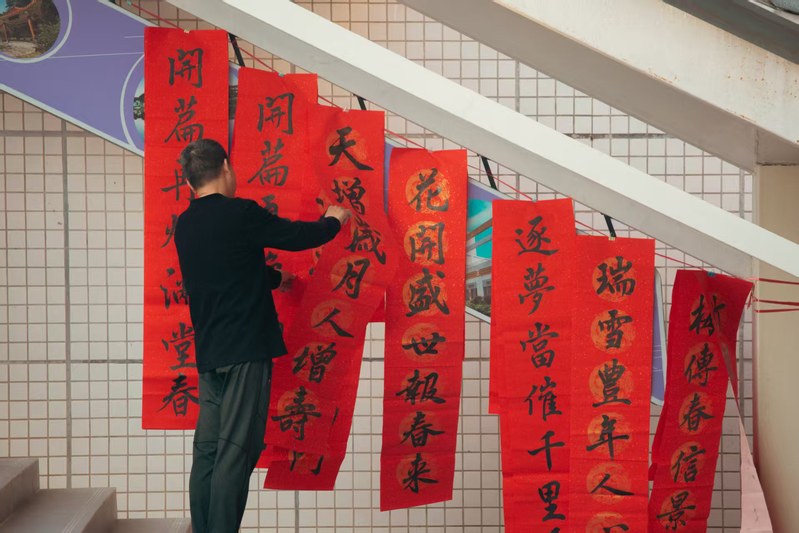 開篇滿堂春
開篇
天增歲月人增壽
門
花開盛世報春來
逐夢當催千里
瑞雪豐年人
傳春信景